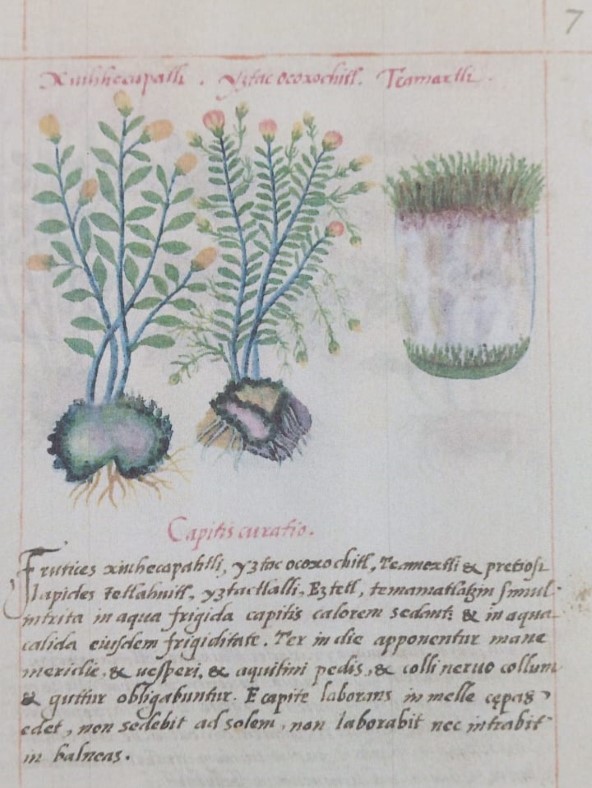 7
Xiuhhecapatli . Yztac ocoxochitl . Teamoxtli .
Capitis curatio.
Frutices xiuhecapahtli, yztac ocoxochitl, Teamoxtli & pretiosi
lapides Tetlahuitl, yztactlalli, Eztetl, temamatlatzin simul
intrita in aqua frigida capitis calorem sedant: & in aqua
calida eiusdem frigiditatē. Ter in die apponentur mane
meridie, & uesperi, & aquitini pedis, & colli neruo collum
& guttur obligabuntur. E capite laborans in melle cępas
edet, non sedebit ad solem, non laborabit nec intrabit
in balneas.